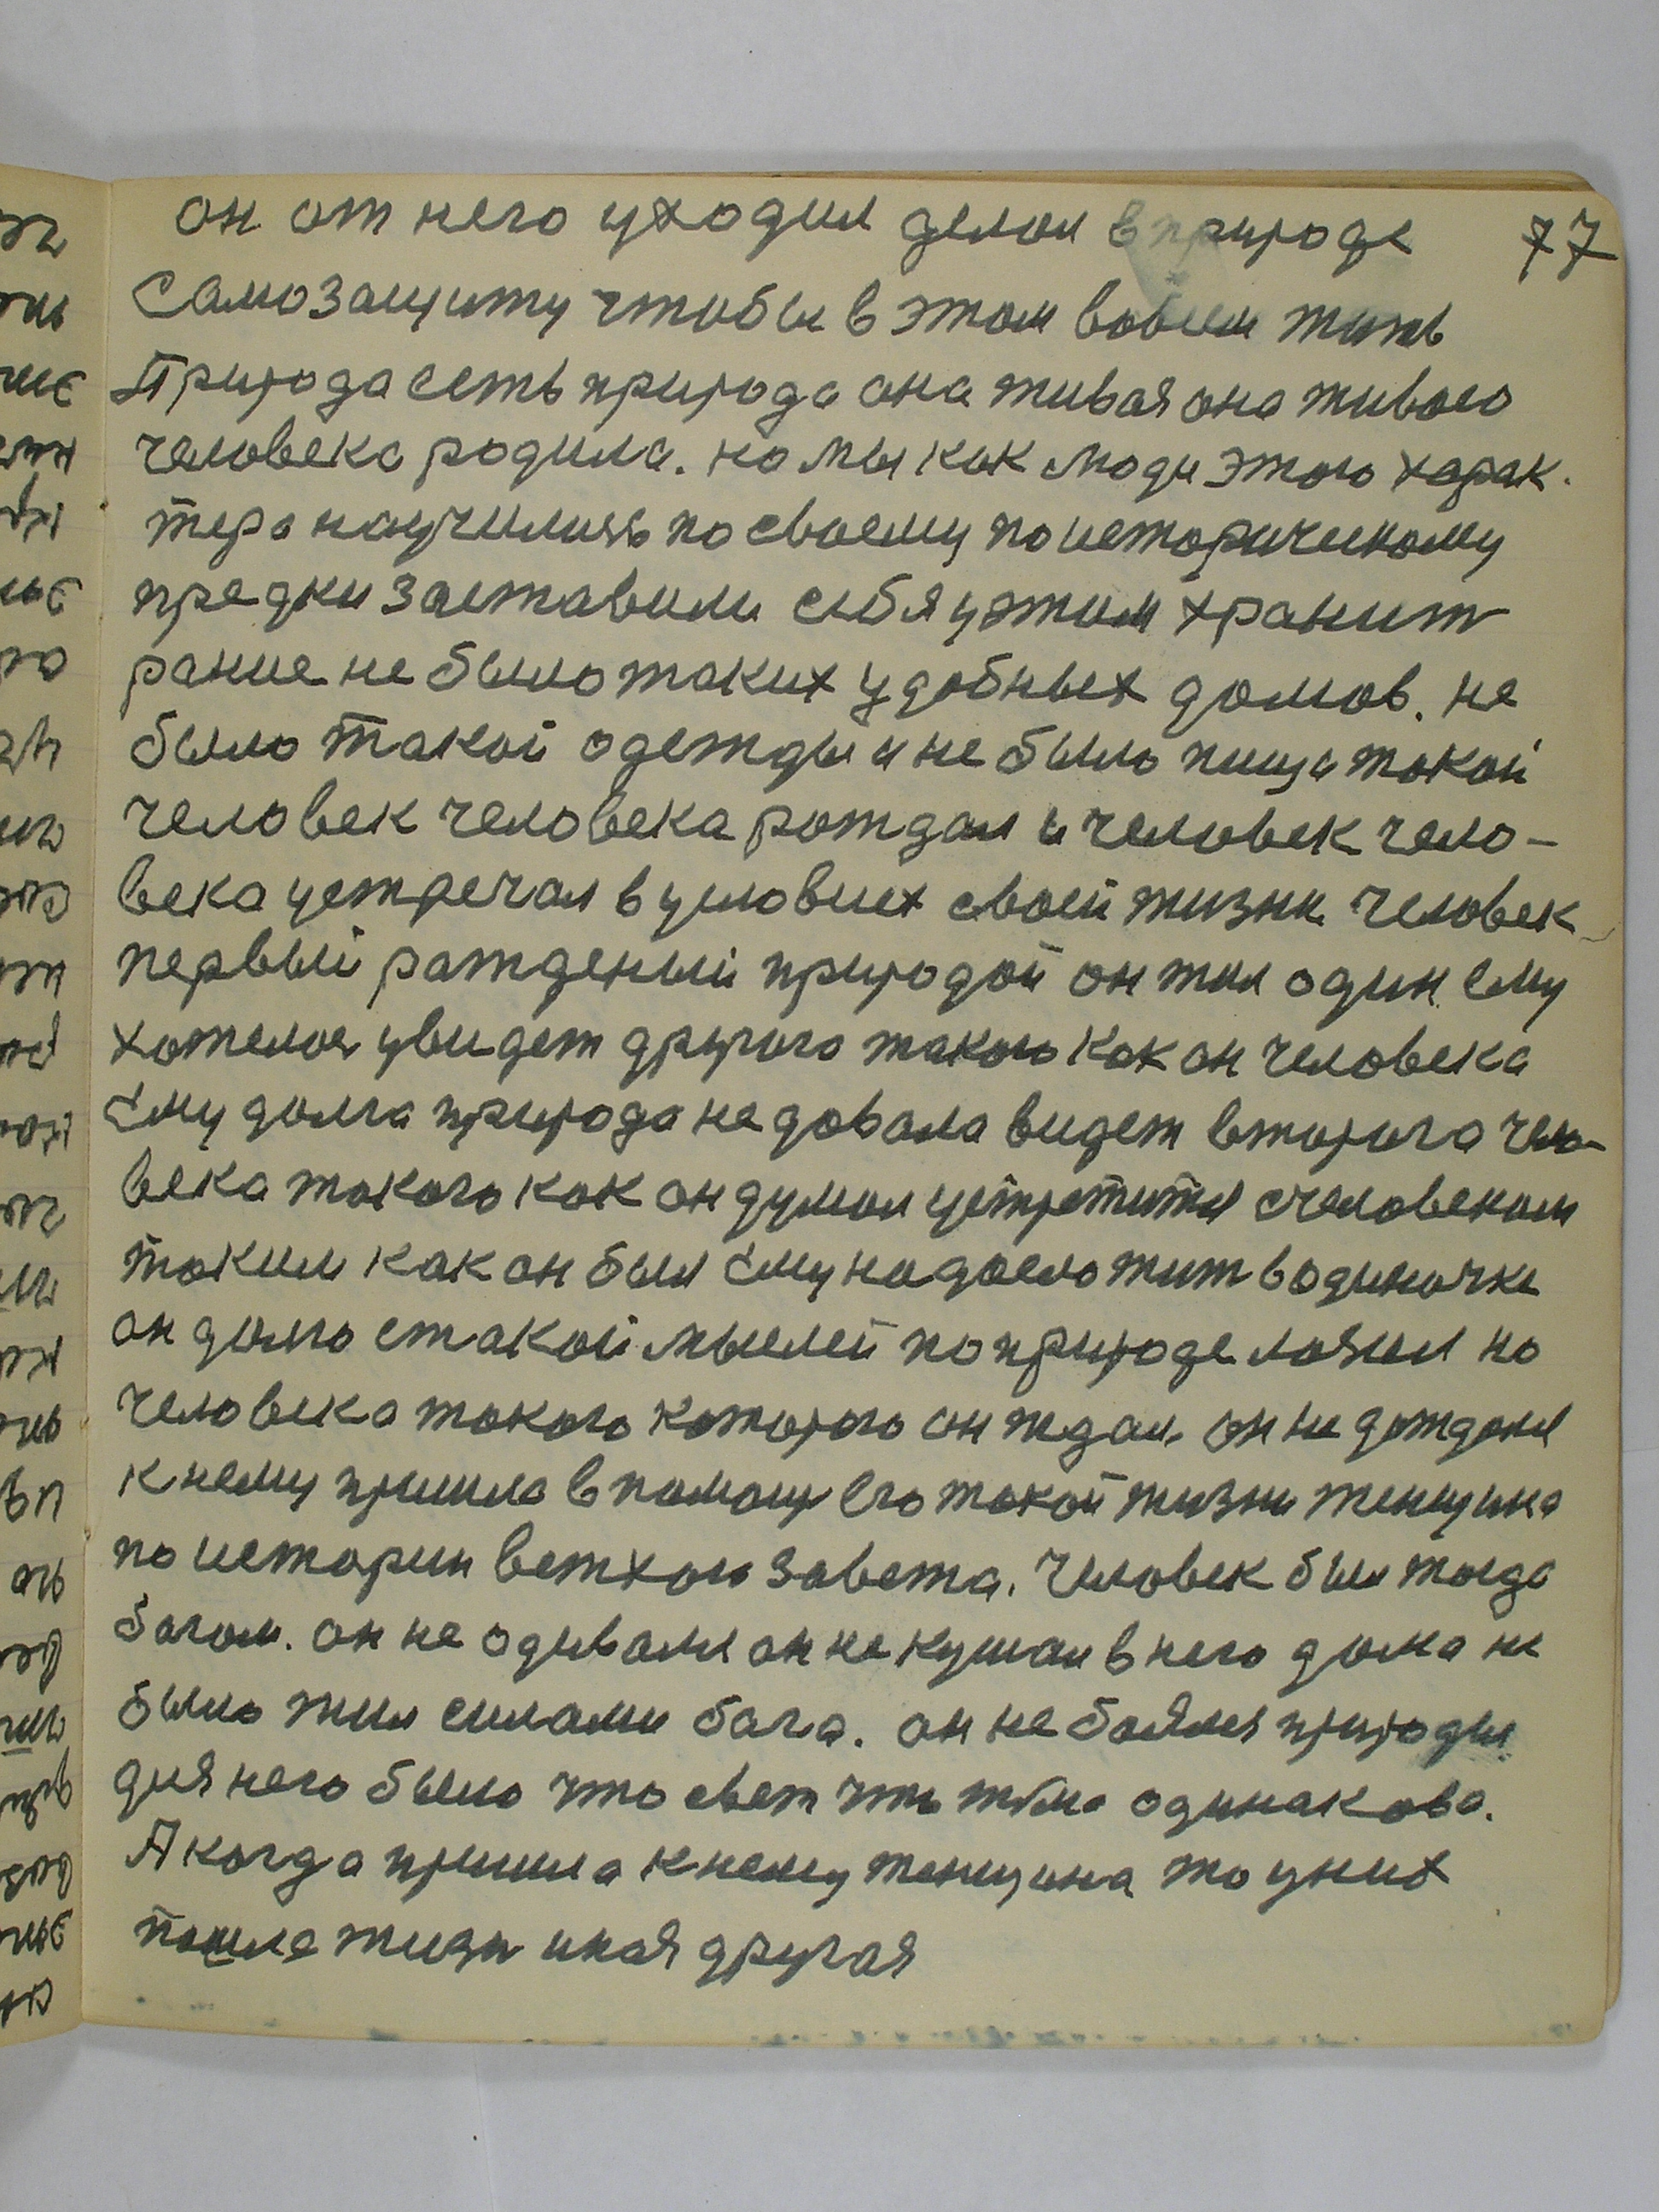 77
он от него уходил делал в природе
самозащиту чтобы в этом во всем жить
Природа есть природа она живая она живого
человека родила. но мы как люди этого харак-
тера научились по своему по историческому
предки заставили себя у этим хранит
ранше не было таких удобных домов. не
было такой одежды и не было пищи такой
человек человека рождал и человек чело-
века устречал в условиях своей жизни человек
первый рожденый природой он жил один ему
хотелося увидет другого такого как он человека
Ему долга природа не довала видет второго чело-
века такого как он думал устретится с человеком
таким как он был Ему надоело жит водиночке
он долго с такой мыслей по природе лазил но
человека такого которого он ждал. он не дождался
к нему пришла в помощ его такой жизни женщина
по истории ветхого завета. Человек был тогда
богом. он не одывался он не кушал в него дома не
было жил силами бога. он не боялся природы
для него было что свет что тьма одинакова.
А когда пришла к нему женщина то у них
пошла жизн иная другая